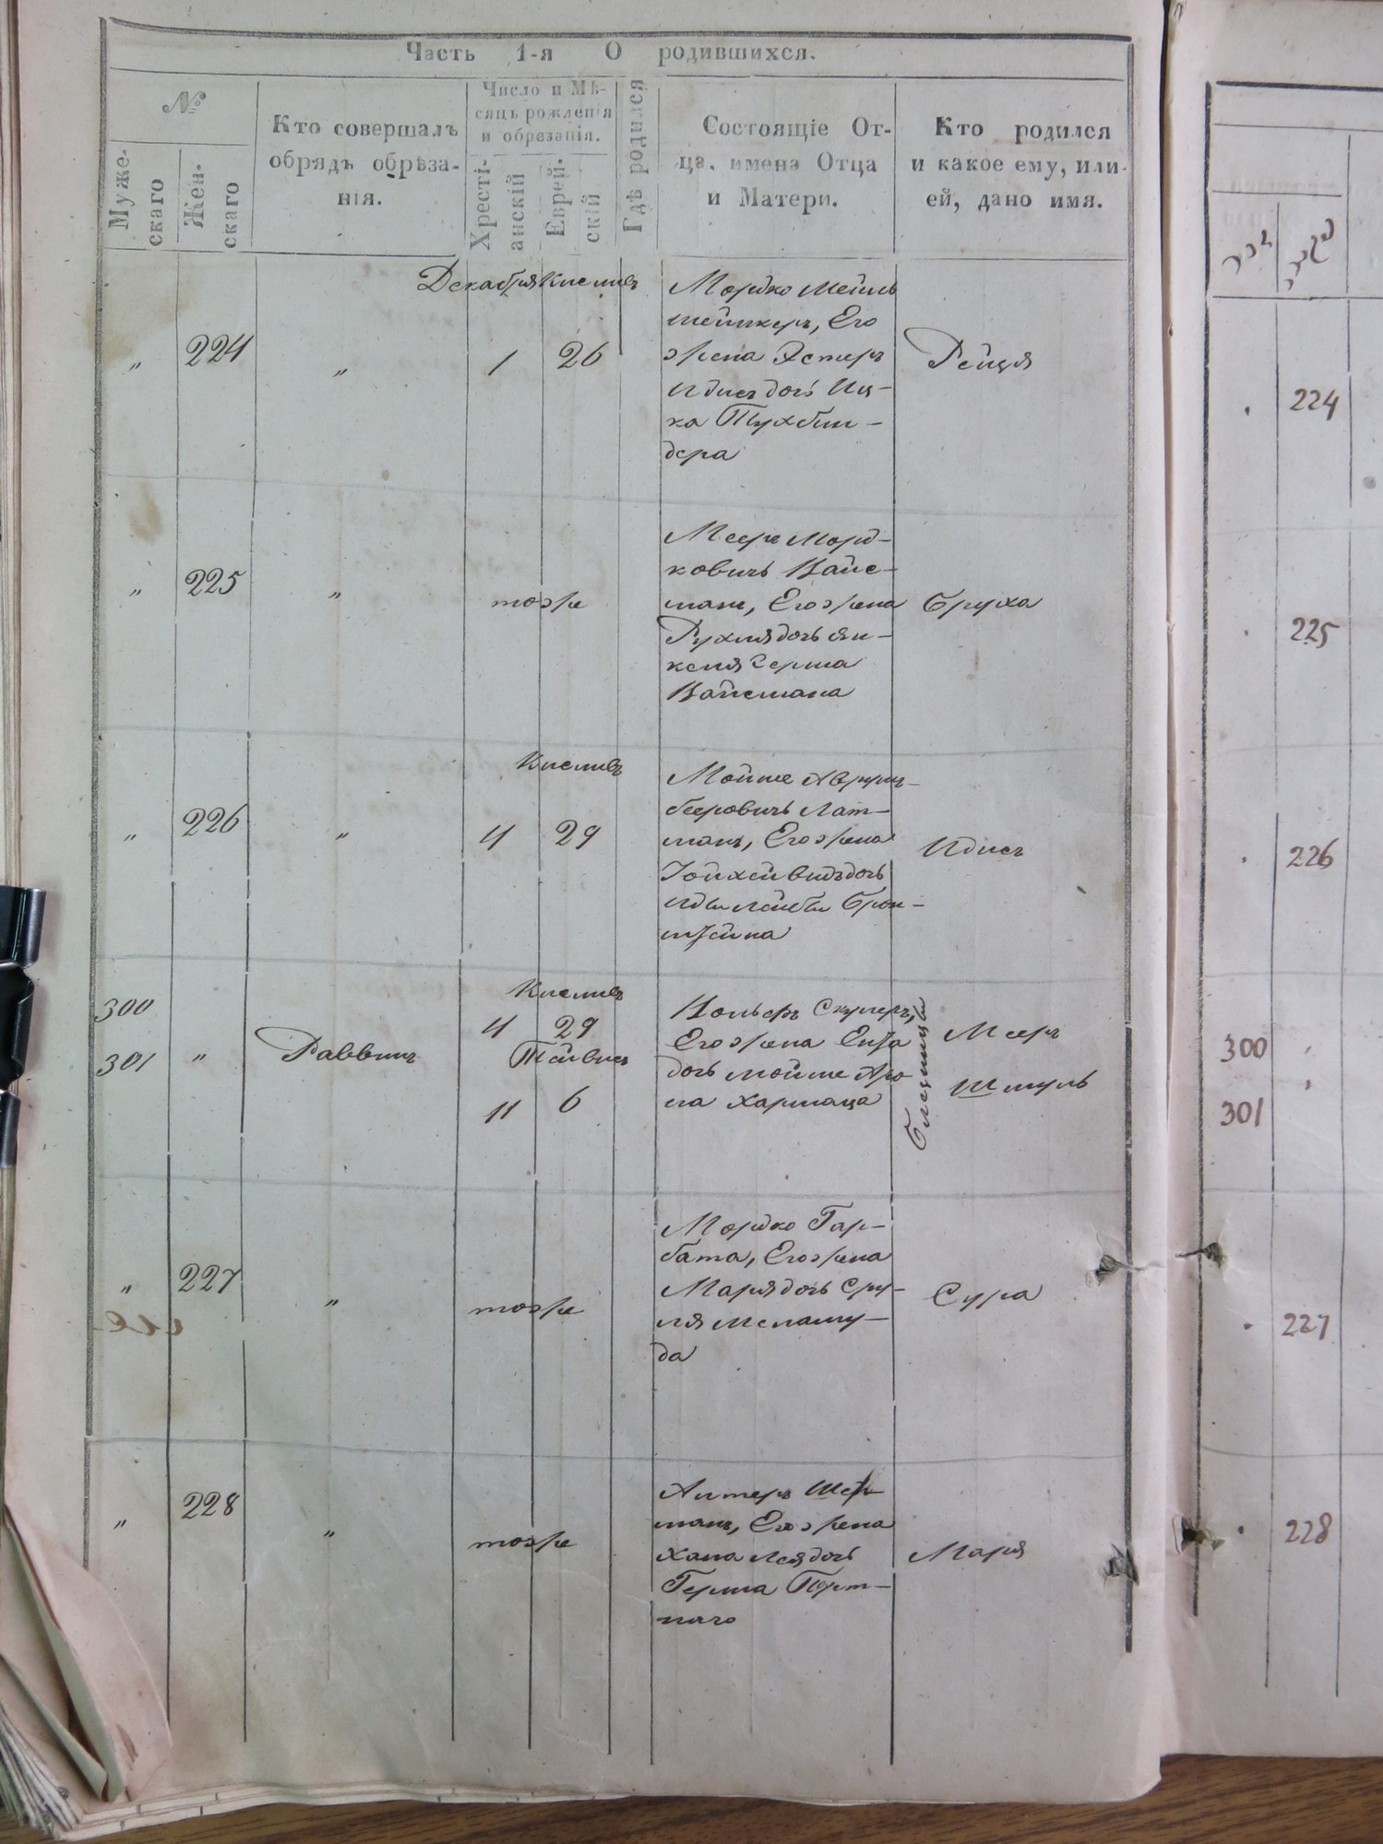 Часть 1-я О родившихся.
№
Муже-
скаго
Жен-
скаго
Кто совершалъ
обрядъ обрѣза-
нія.
Число и Мѣ-
сяцъ рожденія
и обрезанія.
Хресті-
анскій
Еврей-
скій
Гдѣ родился
Состоящіе От-
ца, имена Отца
и Матери.
Кто родился
и какое ему, или
ей, дано имя.
Декабря Кислевъ
„ 224 „ 1 26
Мордко Мейль
Его
жена Эстеръ
Идисъ дочь Иц-
ка Тухбин-
дера
Рейця
„ 225 „ тоже
Мееръ Морд-
ковичъ Вайс-
манъ, Его жена
Рухля дочь Ян-
келя Герша
Вайсмана
Бруха
Кислевъ
„ 226 „ 4 29
Мойше
беровичъ Лат-
манъ, Его жена
дочь
Лейбы Брон-
штейна
Идисъ
300
301 „ Раввинъ
Кислевъ
4 29
Тейвисъ
11 6
Вольфъ Скулеръ,
Его жена Ента
дочь Мойше Аро
на Хармаца
Близницы
Мееръ
Шмуль
„ 227 „ тоже
Мордко Гар-
бата, Его жена
Маря дочь Сру-
ля Меламу-
да
Сура
„ 228 „ тоже
Алтеръ
манъ, Его жена
Хана Лея дочь
Герша Порт-
наго
Маря
224
225
226
300
301
227
228